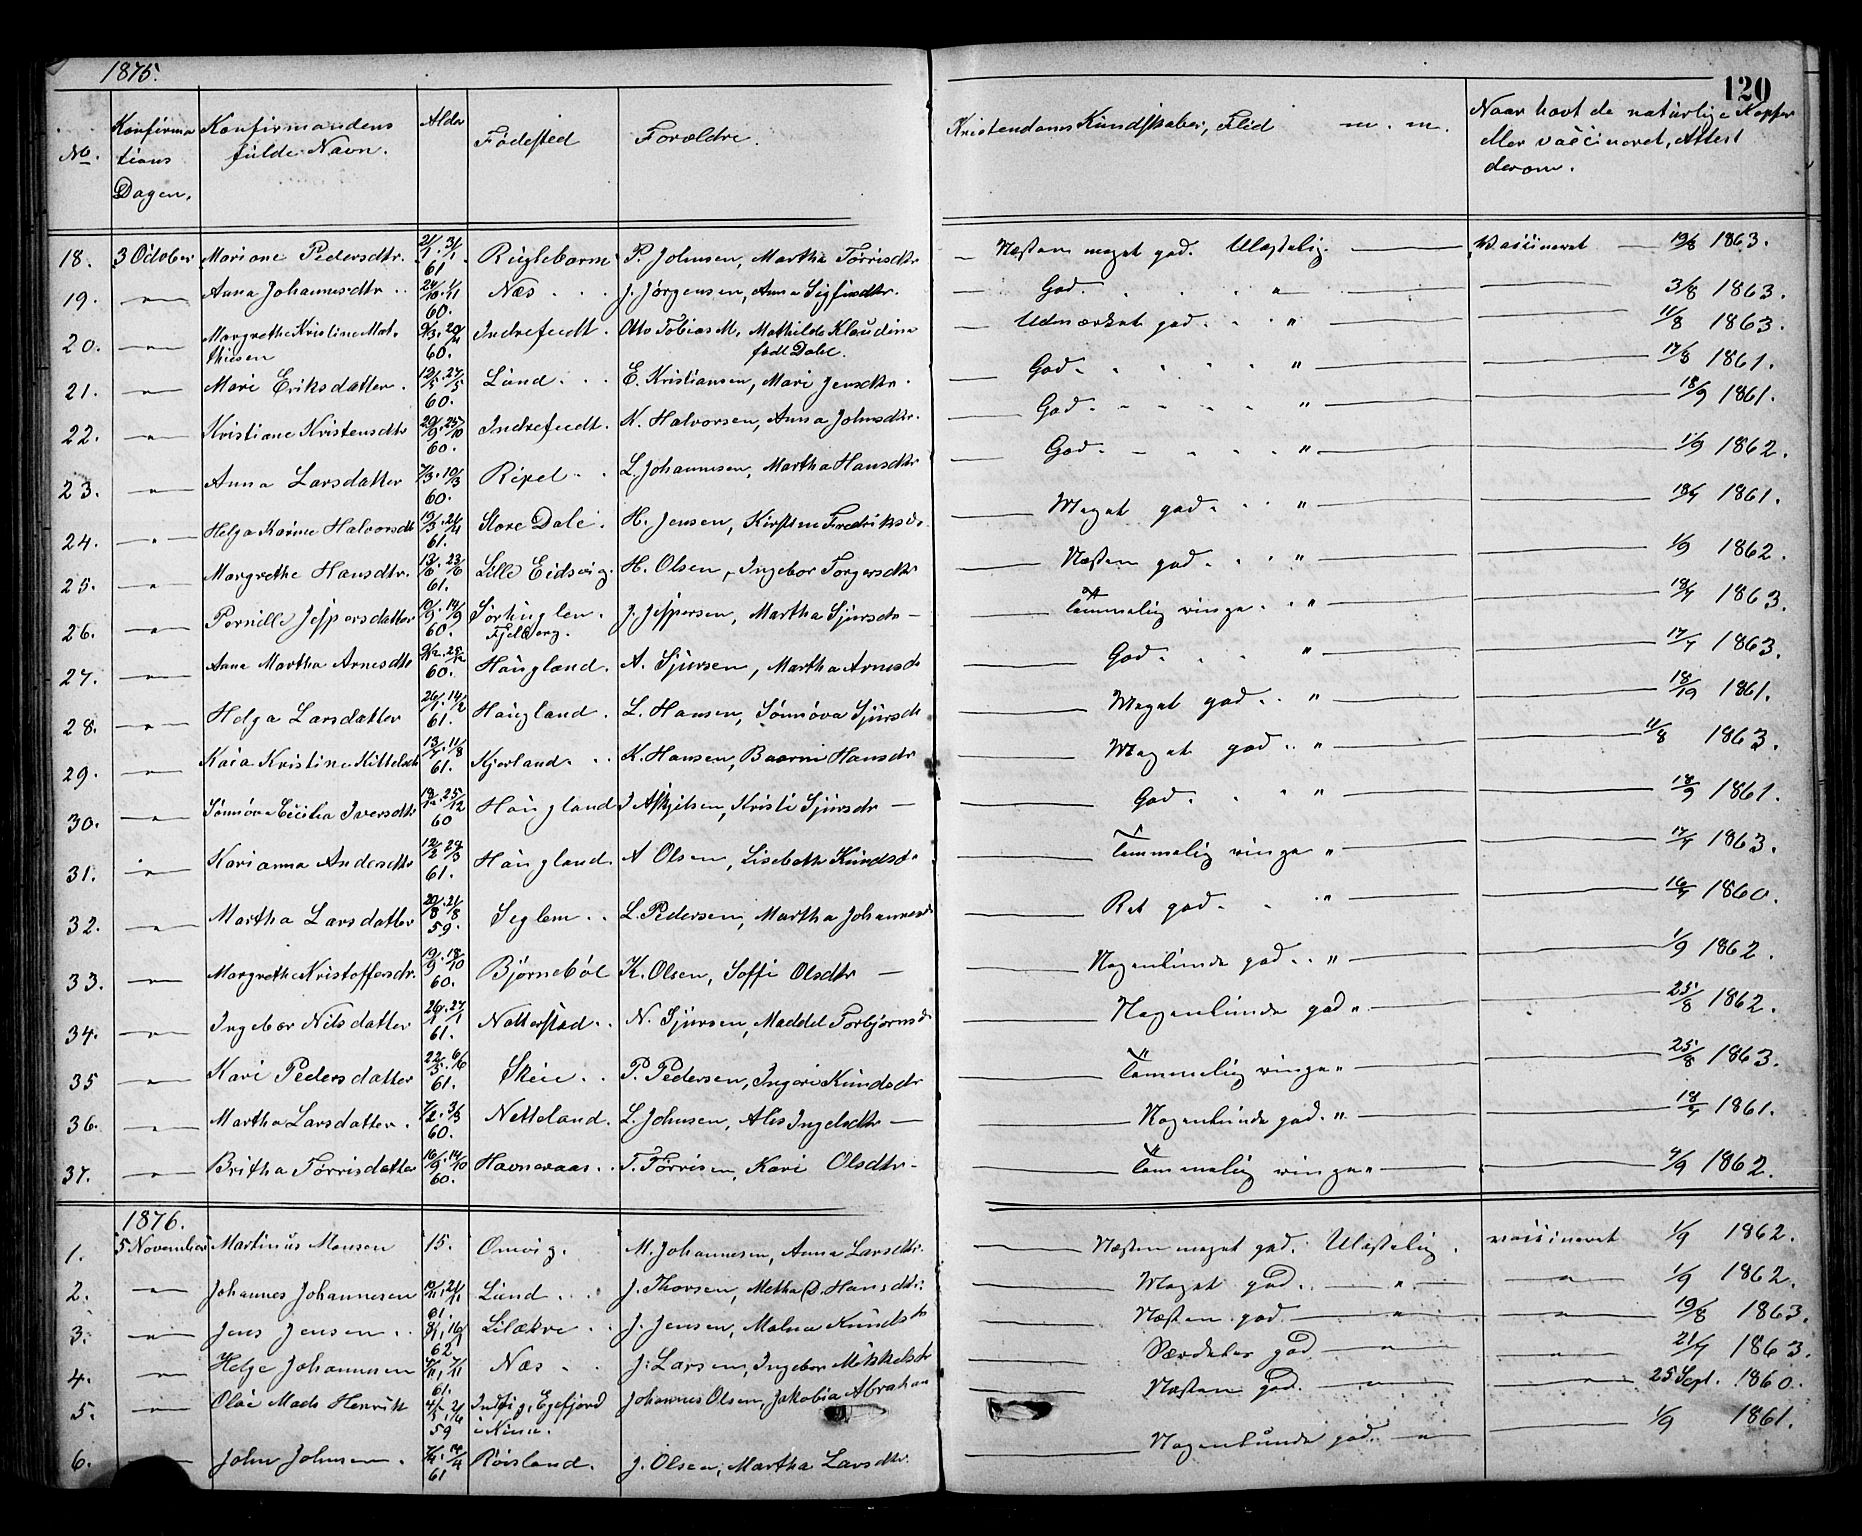 1875.
120
No. Konfirmations Dagen. Konfirmandens fulde Navn. Alder Födested Forældre. Kristendoms Kundskaber, Flid m. m. Naar havt de naturlige Kopper eller vaccineret, Attest derom.
18. 3 October Mariane Pedersdtr. 61 P. Johnsen, Martha Tørrisdtr Næsten meget god. Ulastelig vaccineret 19/8 1863.
19. " Anna Johannesdtr 60. Næs J. Jørgensen, Anna Sigfusdtr. God. " 3/8 1863.
20. " Margrethe Kristine Mat- 60. Indrefendt. Otto Tobias M, Mathilde Klaudine Udmærket god. " 11/8 1863.
thiesen född Dahl.
21. " Mari Eriksdatter. 12/5. 27/5 60. Lünd E. Kristiansen, Mari Jensdtr. God. " 17/8 1861.
22. " Kristiane Kristensdtr 29/9. 25/10 60. Indrefendt. K. Halvorsen, Anna Johnsdtr. God. " 18/9 1861.
23. " Anna Larsdatter 7/3. 10/3 60. Ripel L. Johannesen, Martha Hansdtr God. " 1/9 1862.
24. " Helga Karine Halvorsdt 61. Store Dale. H. Jensen, Kirstine Fredriksd. Meget god. " 18/7 1861.
25. " Margrethe Hansdtr. 13/6. 23/6 61. Lille Eidsvig. H. Olsen, Ingebor Torgersdtr Næsten god. " 1/9 1862.
26. " Pernille Jeppersdatter 10/9. 14/9 60. Sørhüglen. J. Jeppersen, Martha Sjursdt Tammelig ringe. " 18/7 1863.
Fjelberg.
27. " Anna Martha Arnesdtr 9/12. 25/12 60. Haügland. A. Sjursen, Martha Arnesd God. " 17/7 1863.
28. " Helga Larsdatter 26/1. 14/2 61. Haügland. L. Hansen, Sønnøva Sjürsd Meget god. " 18/19 1861.
29. " Kaia Kristine Kittelsdt 13/7. 11/8 61. Kjerland. K. Hansen, Baarni Hansdtr Meget god. " 11/8 1863.
30. " Sønnøva Cecilia Iversdtr 25/12 60 Haügland I Askjelsen, Kristi Sjürsdr God. " 18/9 1861.
31. " Karianna Andersdtr 12/2 24/3 61. Haügland. A Olsen, Lisbeth Knüdsd. Tammelig ringe " 17/7 1863.
32. " Martha Larsdatter 20/8. 21/8 59. Seglem L. Pedersen, Martha Johannesd Ret god. " 16/7 1860.
33. " Margrethe Kristoffersdr. 19/9. 18/10 60. Bjørnebøl K. Olsen, Soffi Olsdtr Nogenlunde god. " 1/9 1862.
34. " Ingebor Nilsdatter 26/1. 27/1 61. Natterstad N. Sjursen, Maddel Torbjørnsd Nogenlunde god " 25/8 1862.
35 " Kari Pedersdatter 22/5. 6/6 61. Skeie P. Pedersen, Ingeri Knüdsdr Tammelig ringe " 25/8 1863.
36. " Martha Larsdatter. 7/2. 3/3 60. Netteland. L. Johnsen, Alis Ingelsdtr Nogenlunde god. " 18/7 1861.
37. " Britha Tørrisdatter 16/9. 14/10 60. Havneraas T. Tørrisen, Kari Olsdtr Tammelig ringe " 4/9 1862.
1876.
1. 5 November Martinus Monsen 15. Omvig. M. Johannesen, Anna Larsdtr. Næsten meget god. Ulastelig. vaccineret 1/9 1862.
2. " Johannes Johannesen 61. Lünd J. Thorsen, Metha D. Hansdtr. Meget god. " " 1/9 1862.
3. " Jens Jensen 62 Lilækre J. Jensen, Malna Knüdsdt Næsten god. " " 19/8 1863.
4. " Helge Johannesen 61. Næs J. Larsen, Ingebor Mikkelsdr Særdeles god " " 21/7 1863.
5. " Olai Mads Henrik 59 Johannes Olsen, Jakobia Abraham Næsten god. " " 25 Sept. 1860.
6. John Johnsen. 61 Røisland. J. Olsen, Martha Larsdtr. Nogenlunde god. " 1/9 1861.